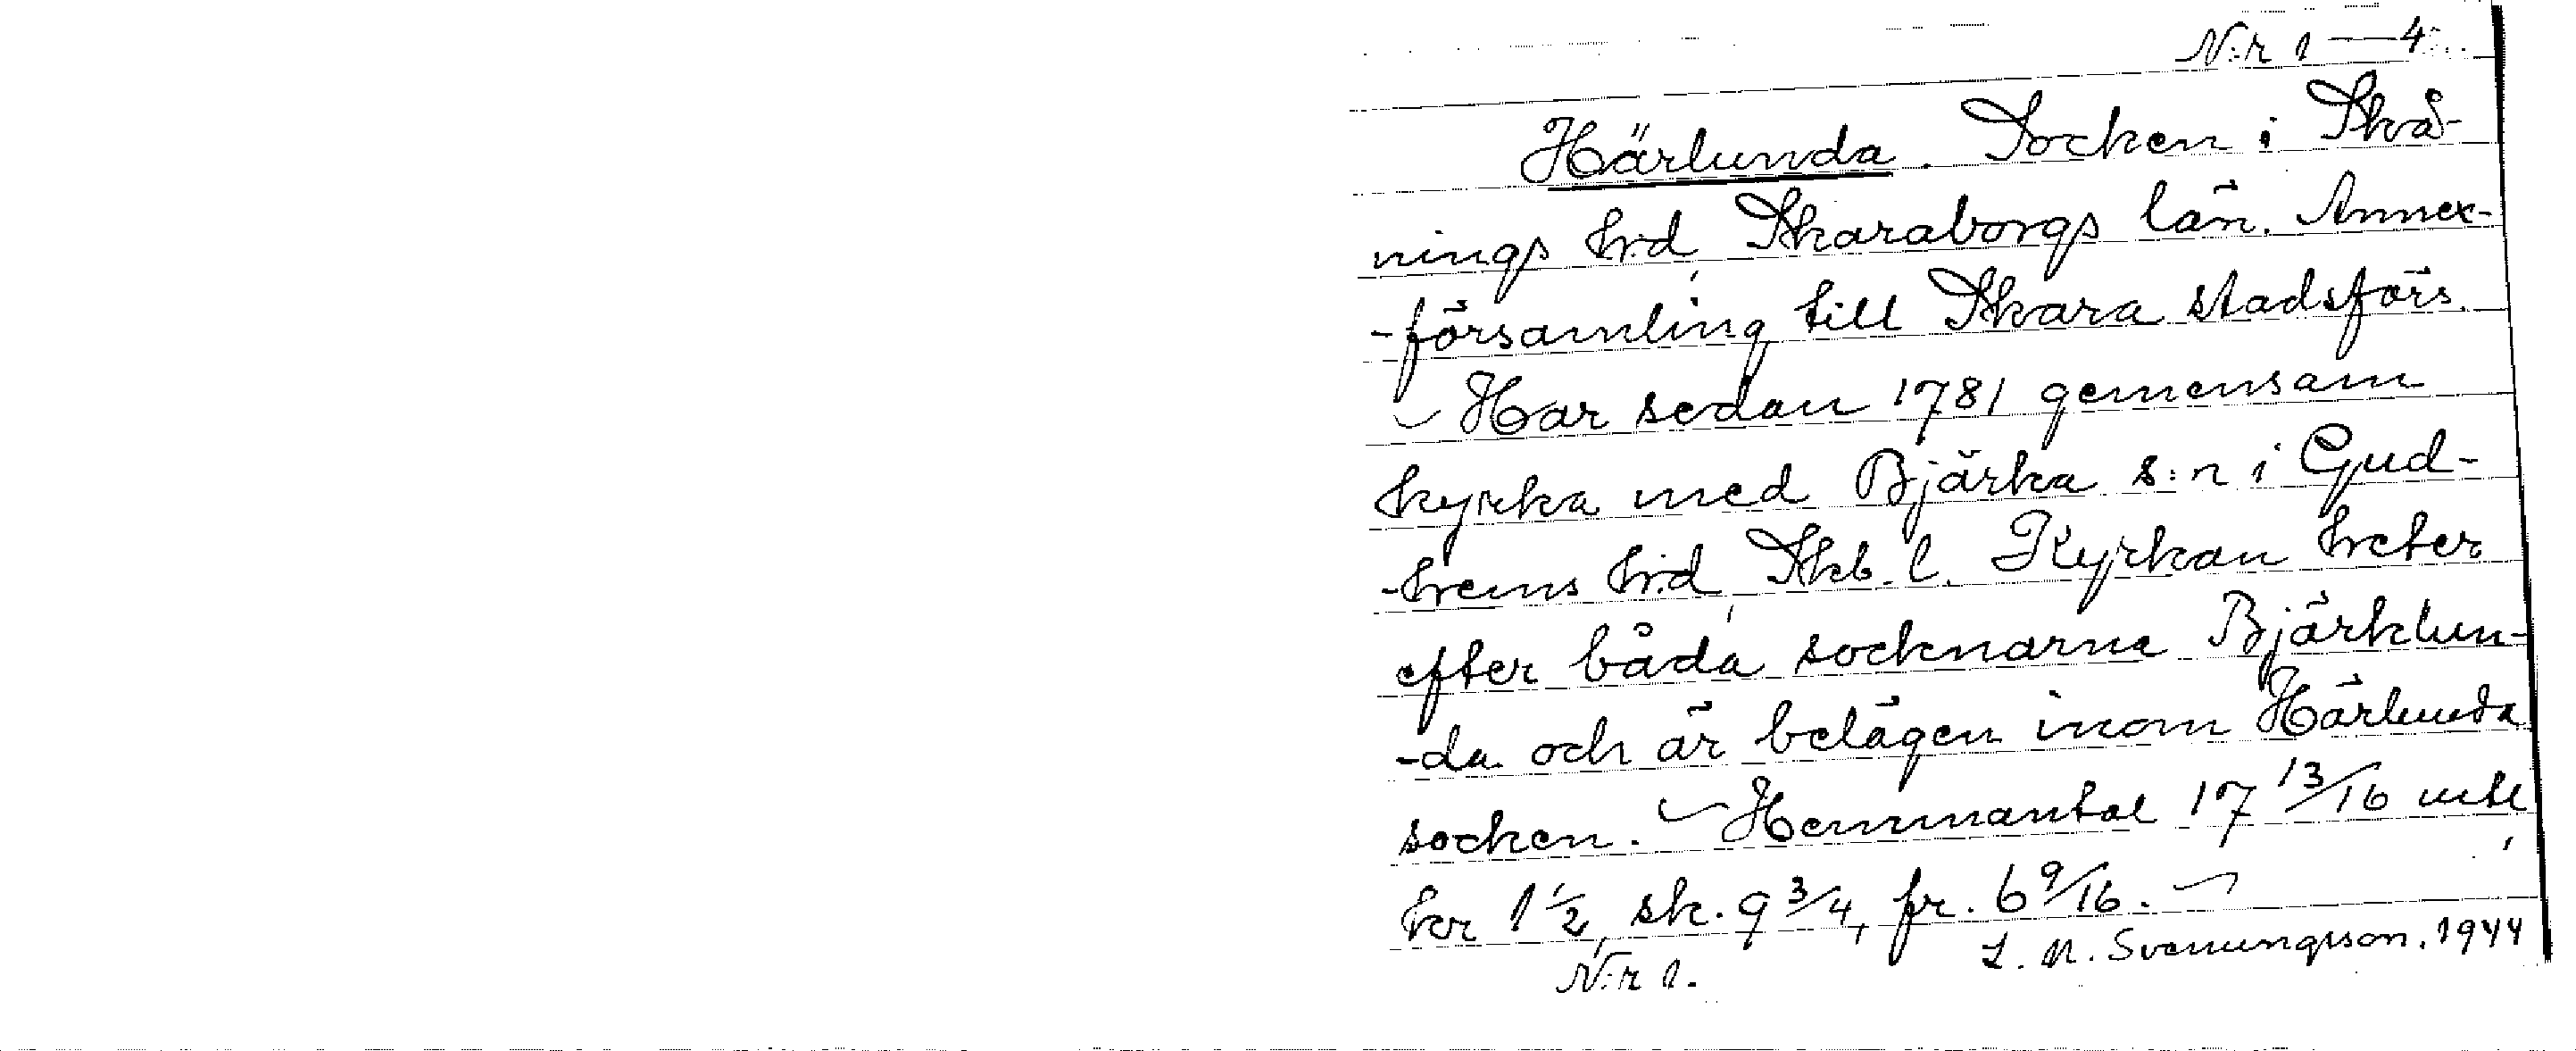 N:r 1 — 4
Härlunda. Socken i Skå-
nings h:d, Skaraborgs län. Annex-
-församling till Skara stadsförs.
~ Har sedan 1781 gemensam
kyrka med Bjärka s:n i Gud-
-hems h:d, Skb. l. Kyrkan heter
efter båda socknarne Bjärklun-
-da och är belägen inom Härlunda
socken. ~ Hemmantal 17 13/16 mtl,
hkr 1 1/2, sk. 9 3/4, fr. 6 9/16. ~
N:r 1.
L. M. Svenungsson. 1944